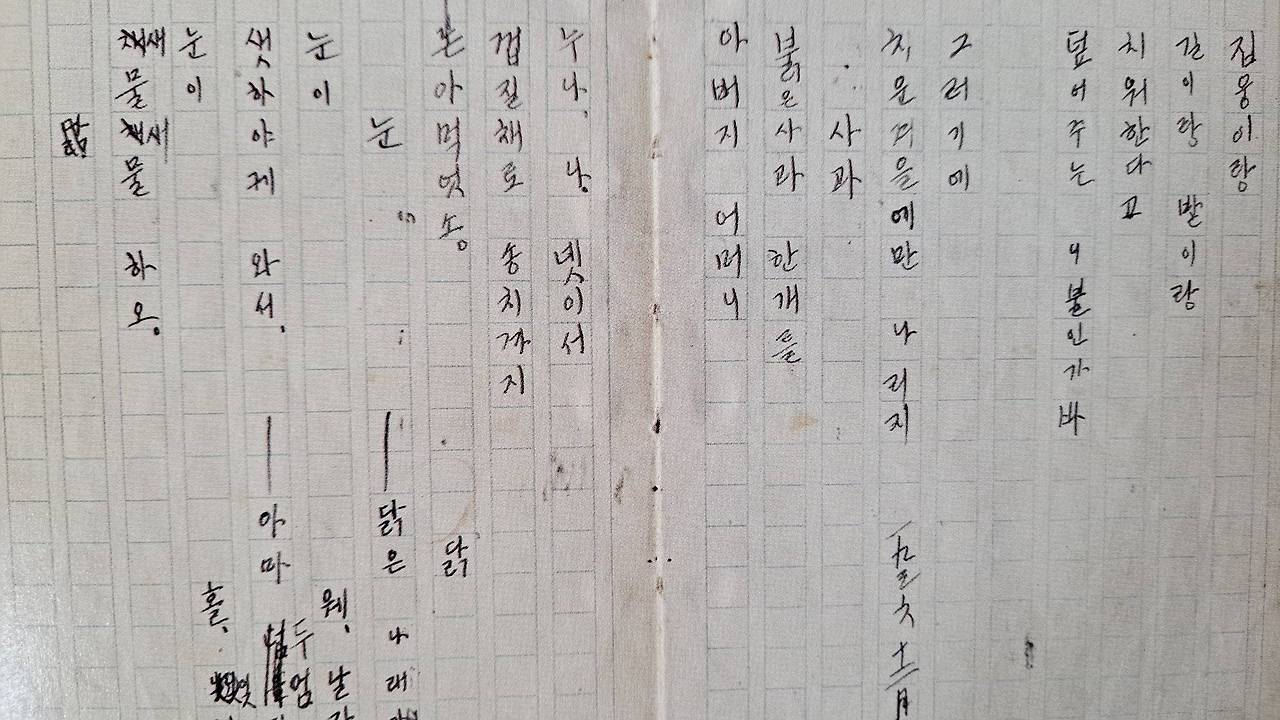 집웅이랑
길이랑 밭이랑
치워한다고
덮어주는 니불인가바
그러기에
치운겨을에만 나리지
十二月
사과
붉은사과 한개를
아버지 어머니
누나, 나, 넷이서
껍질채로 송치까지
논아먹엇소.
눈
눈이
샛하야케 와서,
눈이
새물새물 하오.
닭
—닭은 나래
웨, 날
—아마
두엄
홀,